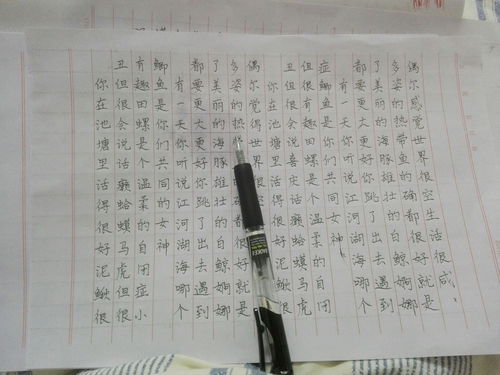 偶尔感觉世界很空生活很咸
多姿的热带鱼的确都很好就是
了美丽的海豚雄壮的白鲸婀娜
都要更大更好你跳了出去遇到
有一天你听说江河湖海哪个
症鲫鱼是你们共同女神
但很有趣田螺是个温柔的自闭
丑但很会说喜庆话癞蛤蟆马虎
你在池塘里活得很好泥鳅很
偶尔觉得世界很
多姿的热的确都很好就是
了美丽的海豚雄壮的白鲸婀娜
都要更大更好你跳了出去遇到
有一天你听说江河湖海哪个
鲫鱼是你们共同的女神
有趣田螺是个温柔的自闭症小
丑但很会说话癞蛤蟆马虎但很
你在池塘里活得很好泥鳅很